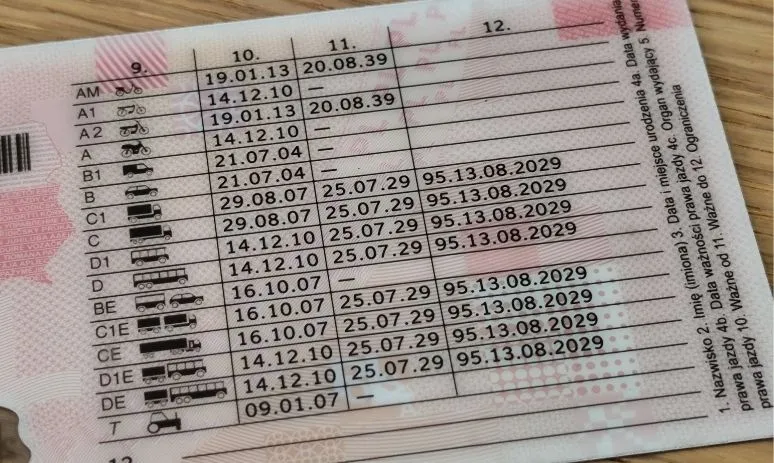 9. 10. 11. 12.
AM 19.01.13 20.08.39
A1 14.12.10 —
A2 19.01.13 20.08.39
A 14.12.10 —
B1 21.07.04 —
B 21.07.04 —
C1 29.08.07 25.07.29 95.13.08.2029
C 29.08.07 25.07.29 95.13.08.2029
D1 14.12.10 25.07.29 95.13.08.2029
D 14.12.10 25.07.29 95.13.08.2029
BE 16.10.07 —
C1E 16.10.07 25.07.29 95.13.08.2029
CE 16.10.07 25.07.29 95.13.08.2029
D1E 14.12.10 25.07.29 95.13.08.2029
DE 14.12.10 25.07.29 95.13.08.2029
T 09.01.07 —
1. Nazwisko 2. Imię (imiona) 3. Data i miejsce urodzenia 4a. Data wydania
prawa jazdy 4b. Data ważności prawa jazdy 4c. Organ wydający 5. Numer
prawa jazdy 10. Ważne od 11. Ważne do 12. Ograniczenia